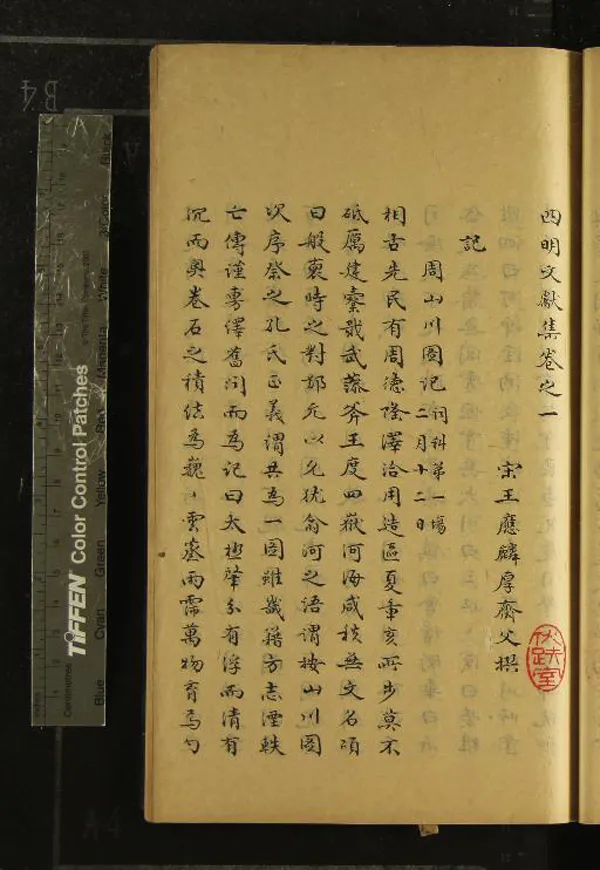 四明文獻集卷之一
宋王應麟厚齋父撰
伏跗室
記
周山川圖記 詞科第一場
二月十二日
相古先民有周德隆澤洽用造區夏章亥所步莫不
砥厲建櫜戢武蕆斧王度四嶽河海咸秩無文名頌
曰般裒時之對鄭氏以允猶翕河之語謂按山川圖
次序祭之孔氏正義謂共為一圖雖畿籍方志湮軼
亡傳謹專繹舊聞而為記曰太極肇分有浮而清有
沉而奧卷石之積結為巍巍雲蒸雨霈萬物育焉勺
TIFFEN Color Control Patches
Centimetres
Blue
Cyan
Green
Yellow
Red
Magenta
White
Black
B4